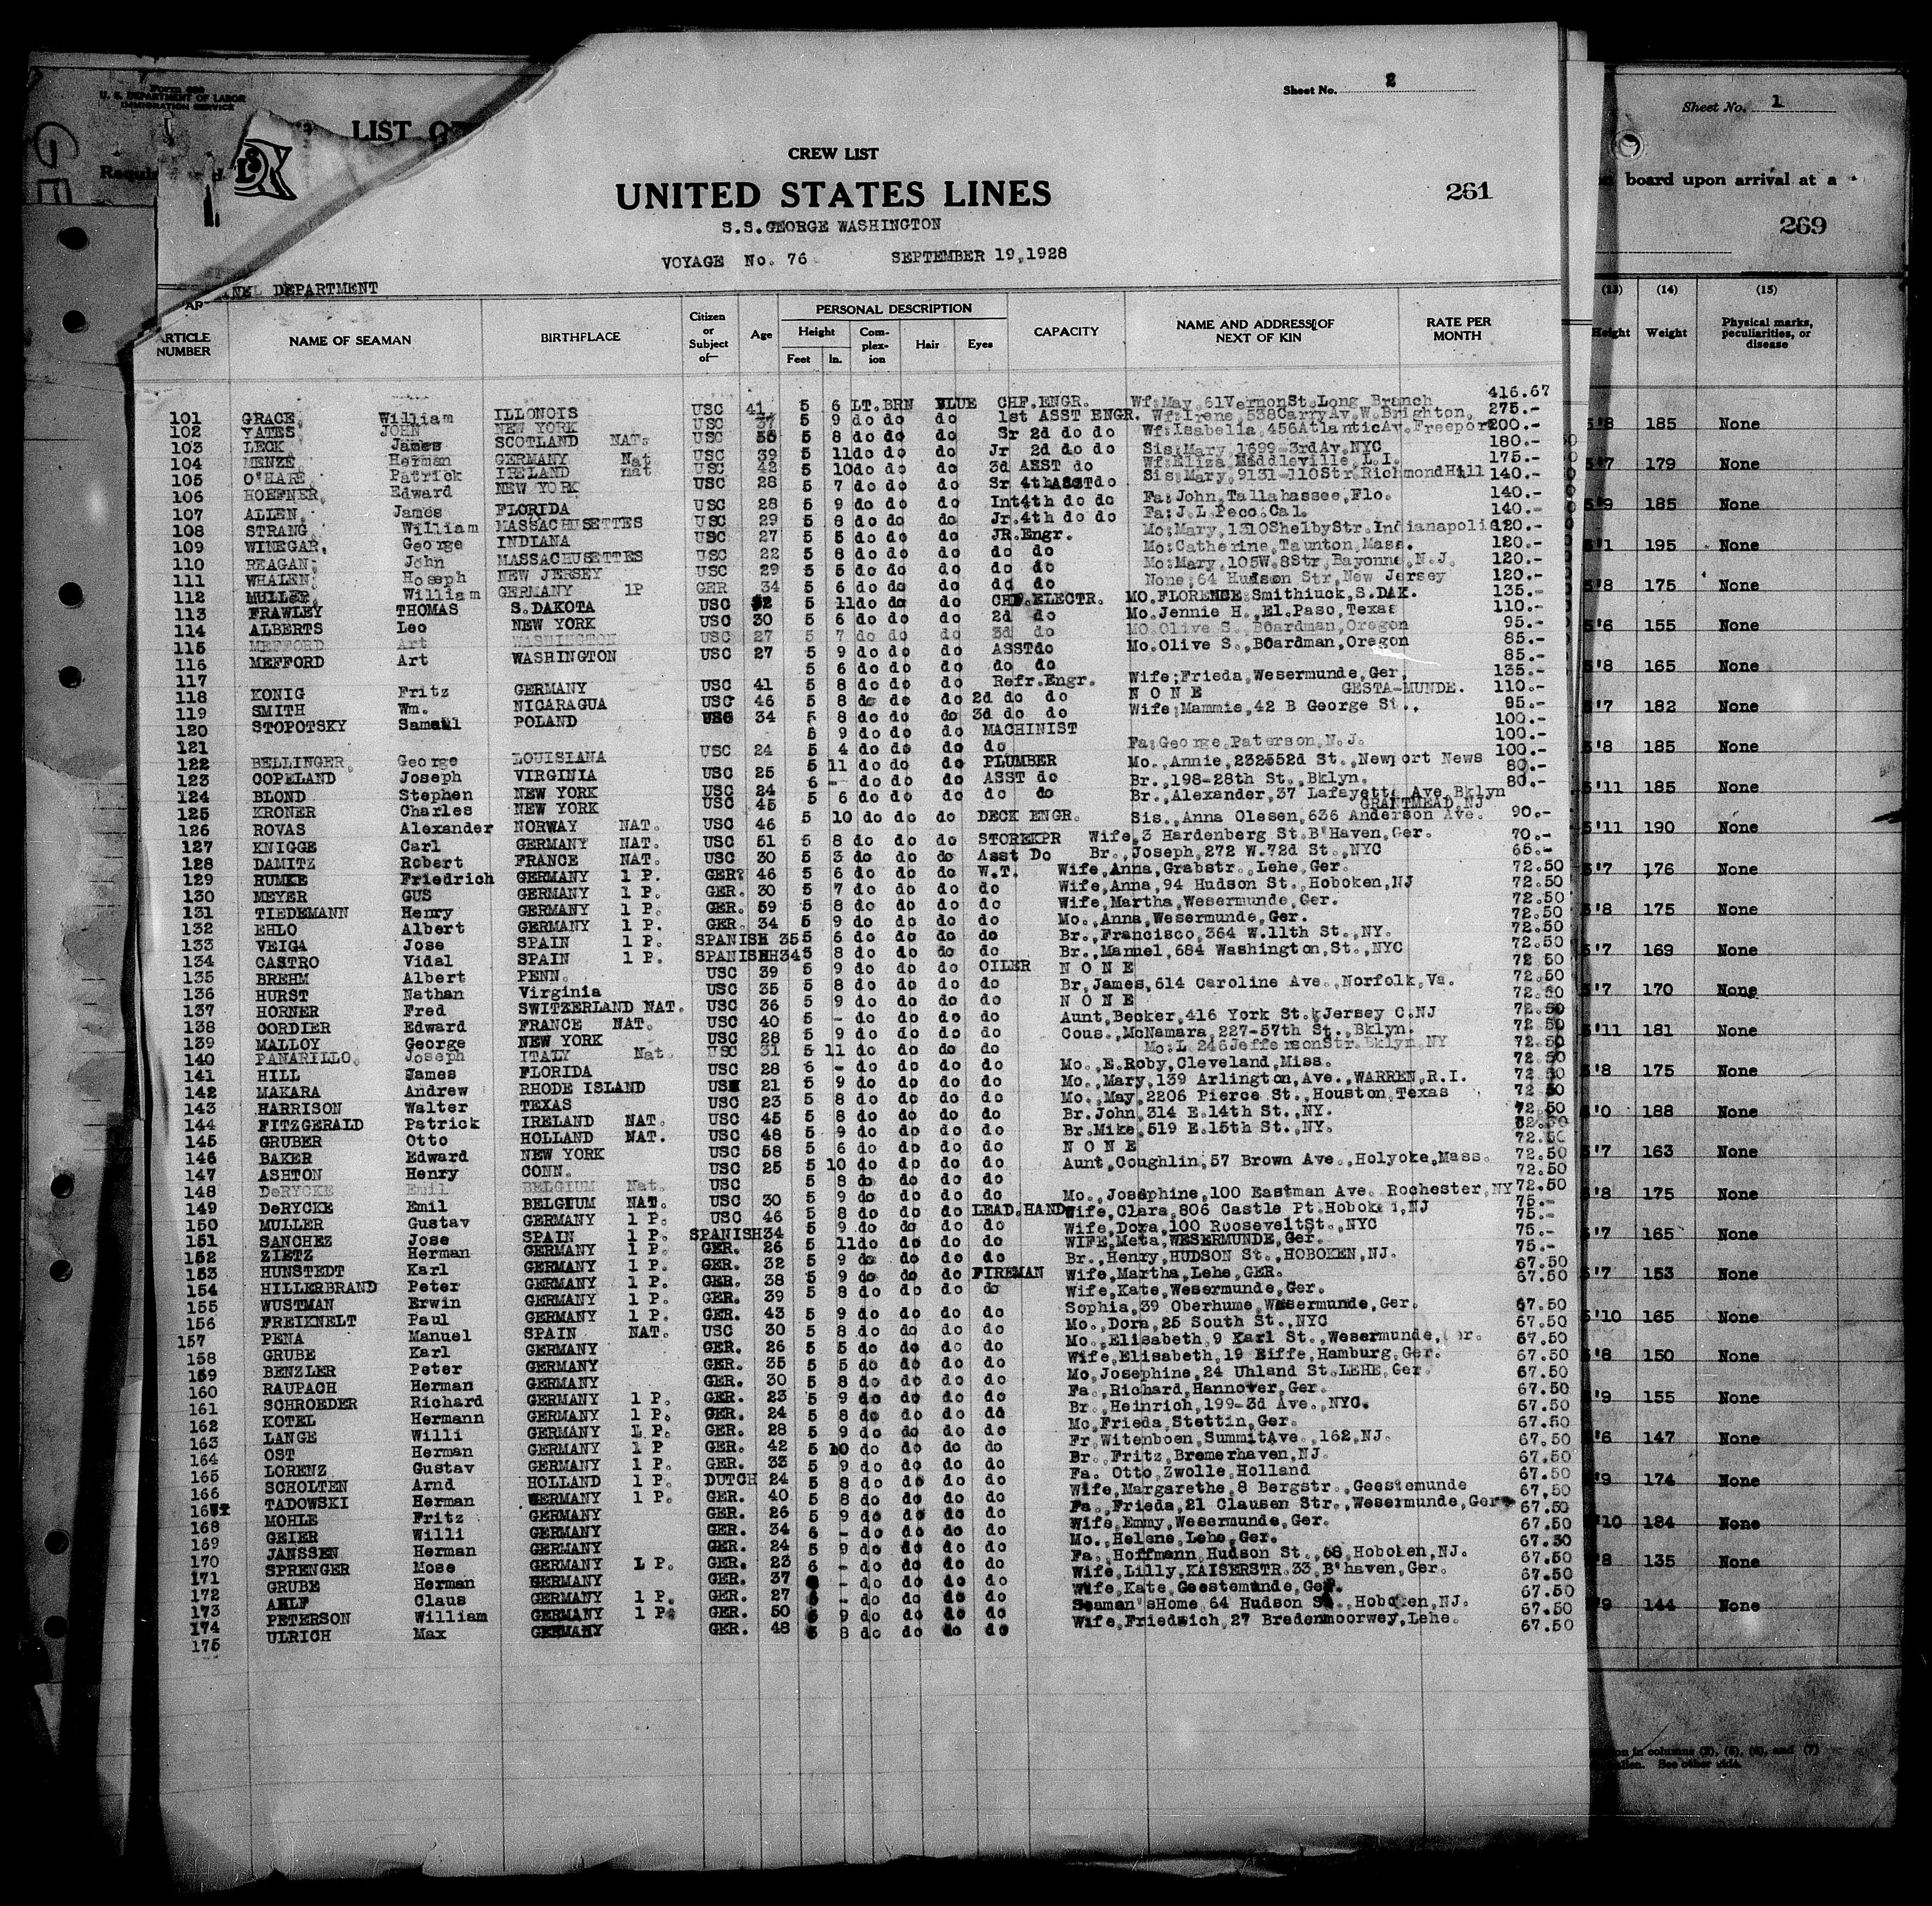 Form 689
U. S. DEPARTMENT OF LABOR
IMMIGRATION SERVICE
LIST OF
Sheet No. 2
CREW LIST
UNITED STATES LINES
261
S.S.GEORGE WASHINGTON
VOYAGE No. 76 SEPTEMBER 19,1928
DEPARTMENT
ARTICLE NUMBER NAME OF SEAMAN BIRTHPLACE Citizen or Subject of— Age PERSONAL DESCRIPTION Height Feet In. Complexion Hair Eyes CAPACITY NAME AND ADDRESS OF NEXT OF KIN RATE PER MONTH
101 GRACE, William ILLONOIS USC 41 5 6 LT. BRN BLUE CHF.ENGR. Wf:May, 61VernonSt.Long Branch 416.67
102 YATES, JOHN NEW YORK USC 37 5 9 do do do 1st ASST ENGR. Wf:Irene, 538CarryAv.W.Brighton, 275.-
103 LECK, James SCOTLAND NAT. USC 5 8 do do do Sr 2d do do Wf:Isabella, 456AtlanticAv.Freeport 200.-
104 MENZE, Herman GERMANY Nat USC 39 5 11 do do do Jr 2d do do Sis:Mary, 1699-3rdAv,NYC 180.-
105 O'HARE, Patrick IRELAND nat USC 42 5 10 do do do 3d ASST do Wf:Eliza, Middleville, L.I. 175.-
106 HOEFNER, Edward NEW YORK USC 28 5 7 do do do Sr 4thASSTdo Sis:Mary, 9131-110Str.RichmondHill 140.-
107 ALLEN, James FLORIDA USC 28 5 9 do do do Int4th do do Fa:John, Tallahassee, Flo. 140.-
108 STRANG, William MASSACHUSETTES USC 29 5 8 do do do Jr.4th do do Fa:J.L Peco.Cal. 140.-
109 WINEGAR, George INDIANA USC 27 5 5 do do do JR.Engr. Mo:Mary, 1310ShelbyStr.Indianapolis 120.-
110 REAGAN, John MASSACHUSETTES USC 22 5 8 do do do do do Mo:Catherine, Taunton, Mass. 120.-
111 WHALEN, Hoseph NEW JERSEY USC 29 5 5 do do do do do Mo:Mary, 105W.8Str, Bayonne, N.J. 120.-
112 MULLER, William GERMANY 1P GER 34 5 6 do do do do do None:64 Hudson Str, New Jersey 120.-
113 FRAWLEY THOMAS S.DAKOTA USC 5 11 do do do CHF.ELECTR. MO.FLORENCE Smithiuck, S.DAK. 135.-
114 ALBERTS Leo NEW YORK USC 30 5 6 do do do 2d do Mo.Jennie H., El.Paso, Texas 110.-
115 MEFFORD Art WASHINGTON USC 27 5 7 do do do 3d do MO.Olive S., BOardman, Oregon 95.-
116 MEFFORD Art WASHINGTON USC 27 5 9 do do do ASSTdo Mo.Olive S., BOardman, Oregon 85.-
117 5 6 do do do do do 85.-
118 KONIG Fritz GERMANY USC 41 5 8 do do do Refr.Engr. Wife;Frieda, Wesermunde, Ger, 135.-
119 SMITH Wm. NICARAGUA USC 46 5 8 do do do 2d do do N O N E GESTA-MUNDE. 110.-
120 STOPOTSKY Samall POLAND USC 34 5 8 do do do 3d do do Wife;Mammie, 42 B George St., 95.-
121 5 9 do do do MACHINIST 100.-
122 BELLINGER, George LOUISIANA USC 24 5 4 do do do do Fa:George, Paterson, N.J. 100.-
123 COPELAND Joseph VIRGINIA USC 25 5 11 do do do PLUMBER Mo., Annie, 232552d St., Newport News 100.-
124 BLOND Stephen NEW YORK USC 24 6 - do do do ASST do Br., 198-28th St., Bklyn. 80.-
125 KRONER Charles NEW YORK USC 45 5 6 do do do do do Br., Alexander, 37 Lafayette Ave, Bklyn 80.-
GRANTMEAD,NJ
126 ROVAS Alexander NORWAY NAT. USC 46 5 10 do do do DECK ENGR. Sis., Anna Olesen, 636 Anderson Ave. 90.-
127 KNIGGE Carl GERMANY NAT. USC 51 5 8 do do do STOREKPR Wife, 3 Hardenberg St. B'Haven, Ger. 70.-
128 DAMITZ Robert FRANCE NAT. USC 30 5 3 do do do Asst Do Br., Joseph, 272 W.72d St., NYC 65.-
129 RUMKE Friedrich GERMANY 1 P. GER? 46 5 6 do do do W.T. Wife, Anna, Grabstr., Lehe, Ger. 72.50
130 MEYER GUS GERMANY 1 P. GER. 30 5 7 do do do do Wife, Anna, 94 Hudson St., Hoboken, NJ 72.50
131 TIEDEMANN Henry GERMANY 1 P. GER. 59 5 8 do do do do Wife, Martha, Wesermunde, Ger. 72.50
132 EHLO Albert GERMANY 1 P. GER. 34 5 9 do do do do Mo., Anna, Wesermunde, Ger. 72.50
133 VEIGA Jose SPAIN 1 P. SPANISH 35 5 6 do do do do Br., Francisco, 364 W.11th St., NY. 72.50
134 CASTRO Vidal SPAIN 1 P. SPANISHH34 5 8 do do do do Br., Manuel, 684 Washington, St., NYC 72.50
135 BREHM Albert PENN. USC 39 5 9 do do do OILER N O N E 72.50
136 HURST Nathan Virginia USC 35 5 8 do do do do Br, James, 614 Caroline Ave., Norfolk, Va. 72.50
137 HORNER Fred SWITZERLAND NAT. USC 36 5 9 do do do do N O N E 72.50
138 CORDIER Edward FRANCE NAT. USC 40 5 - do do do do Aunt, Becker, 416 York St., Jersey C.NJ 72.50
139 MALLOY George NEW YORK USC 28 5 9 do do do do Cous., McNamara, 227-57th St., Bklyn. 72.50
140 PANARILLO, Joseph ITALY Nat. USC 31 5 11 do do do do Mo:L 246JeffersonStr.Bklyn, NY 72.50
141 HILL James FLORIDA USC 28 6 - do do do do Mo., E.Roby, Cleveland, Miss. 72.50
142 MAKARA Andrew RHODE ISLAND USC 21 5 9 do do do do Mo., Mary, 139 Arlington, Ave., WARREN, R.I. 72.50
143 HARRISON Walter TEXAS USC 23 5 8 do do do do Mo., May, 2206 Pierce St., Houston, Texas 72.50
144 FITZGERALD Patrick IRELAND NAT. USC 45 5 8 do do do do Br. John, 314 E.14th St., NY. 72.50
145 GRUBER Otto HOLLAND NAT. USC 48 5 9 do do do do Br.Mike, 519 E.15th St., NY. 72.50
146 BAKER Edward NEW YORK USC 58 5 6 do do do do N O N E 72.50
147 ASHTON Henry CONN. USC 25 5 10 do do do do Aunt, Coughlin, 57 Brown Ave., Holyoke, Mass. 72.50
148 DeRYCKE Emil BELGIUM Nat. USC 5 8 do do do do 72.50
149 DeRYCKE Emil BELGIUM NAT. USC 30 5 9 do do do do Mo., Josephine, 100 Eastman Ave. Rochester, NY 72.50
150 MULLER Gustav GERMANY 1 P. USC 46 5 8 do do do LEAD.HAND Wife, Clara, 806 Castle Pt.Hoboken, NJ 75.-
151 SANCHEZ Jose SPAIN 1 P. SPANISH34 5 9 do do do do Wife, Dora, 100 RooseveltSt., NYC 75.-
152 ZIETZ Herman GERMANY 1 P. GER. 26 5 11 do do do do WIFE, Meta, WESERMUNDE, Ger. 75.-
153 HUNSTEDT Karl GERMANY 1 P. GER. 32 5 9 do do do do Br., Henry, HUDSON St., HOBOKEN, NJ. 75.-
154 HILLERBRAND Peter GERMANY 1 P. GER. 38 5 9 do do do FIREMAN Wife, Martha, Lehe, GER. 67.50
155 WUSTMAN Erwin GERMANY 1 P. GER. 39 5 8 do do do do Wife, Kate, Wesermunde, Ger. 67.50
156 FREIKNELT Paul GERMANY 1 P. GER. 43 5 9 do do do do Sophia, 39 Oberhume, Wesermunde, Ger. 67.50
157 PENA Manuel SPAIN NAT. USC 30 5 8 do do do do Mo., Dora, 25 South St., NYC 67.50
158 GRUBE Karl GERMANY GER. 26 5 5 do do do do Mo., Elisabeth, 9 Karl St., Wesermunde, Ger. 67.50
159 BENZLER Peter GERMANY GER. 35 5 5 do do do do Wife, Elisabeth, 19 Eiffe, Hamburg, Ger. 67.50
160 RAUPACH Herman GERMANY GER. 30 5 8 do do do do Mo, Josephine, 24 Uhland St.LEHE, Ger. 67.50
161 SCHROEDER Richard GERMANY 1 P. GER. 23 5 9 do do do do Fa., Richard, Hannover, Ger. 67.50
162 KOTEL Hermann GERMANY 1 P. GER. 24 5 8 do do do do Br., Heinrich, 199-3d Ave., NYC. 67.50
163 LANGE Willi GERMANY 1 P. GER. 28 5 9 do do do do Mo, Frieda, Stettin, Ger. 67.50
164 OST Herman GERMANY 1 P GER. 42 5 10 do do do do Fr, Witenboen, SummitAve., 162, NJ. 67.50
165 LORENZ Gustav GERMANY 1 P. GER. 33 5 9 do do do do Br., Fritz, Bremerhaven, NJ. 67.50
166 SCHOLTEN Arnd HOLLAND 1 P. DUTCH 24 5 8 do do do do Fa. Otto, Zwolle, Holland 67.50
167 TADOWSKI Herman GERMANY 1 P. GER. 40 5 8 do do do do Wife, Margarethe, 8 Bergstr., Geestemunde 67.50
168 MOHLE Fritz GERMANY GER. 26 5 9 do do do do Fa., Frieda, 21 Clausen Str., Wesermunde, Ger 67.50
169 GEIER Willi GERMANY GER. 34 6 - do do do do Wife, Emmy, Wesermunde, Ger. 67.50
170 JANSSEN Herman GERMANY GER. 24 5 9 do do do do Mo., Helene, Lehe, Ger. 67.50
171 SPRENGER Mose GERMANY 1 P. GER. 23 6 - do do do do Fa., Hoffmann, Hudson St., 68, Hoboken, NJ. 67.50
172 GRUBE Herman GERMANY GER. 37 - do do do do Wife, Lilly, KAISERSTR.33, B'haven, Ger. 67.50
173 AHLF Claus GERMANY 1 P. GER. 27 - do do do do Wife, Kate, Geestemunde, Ger. 67.50
174 PETERSON William GERMANY 1 P. GER. 50 9 do do do do Seaman'sHome, 64 Hudson St., Hoboken, NJ. 67.50
175 ULRICH Max GERMANY GER. 48 8 do do do do Wife, Friedwich, 27 Bredenmoorwey, Lehe. 67.50
Sheet No. 1
board upon arrival at a
269
(13) (14) (15)
Height Weight Physical marks, peculiarities, or disease
5'8 185 None
5'7 179 None
5'9 185 None
5'1 195 None
5'8 175 None
5'6 155 None
5'8 165 None
5'7 182 None
5'8 185 None
5'11 185 None
5'11 190 None
5'7 176 None
5'8 175 None
5'7 169 None
5'7 170 None
5'11 181 None
5'8 175 None
5'0 188 None
5'7 163 None
5'8 175 None
5'7 165 None
5'7 153 None
5'10 165 None
5'8 150 None
5'9 155 None
5'6 147 None
5'9 174 None
5'10 184 None
5'8 135 None
5'9 144 None
in columns (3), (5), (6), and (7)
See other side.